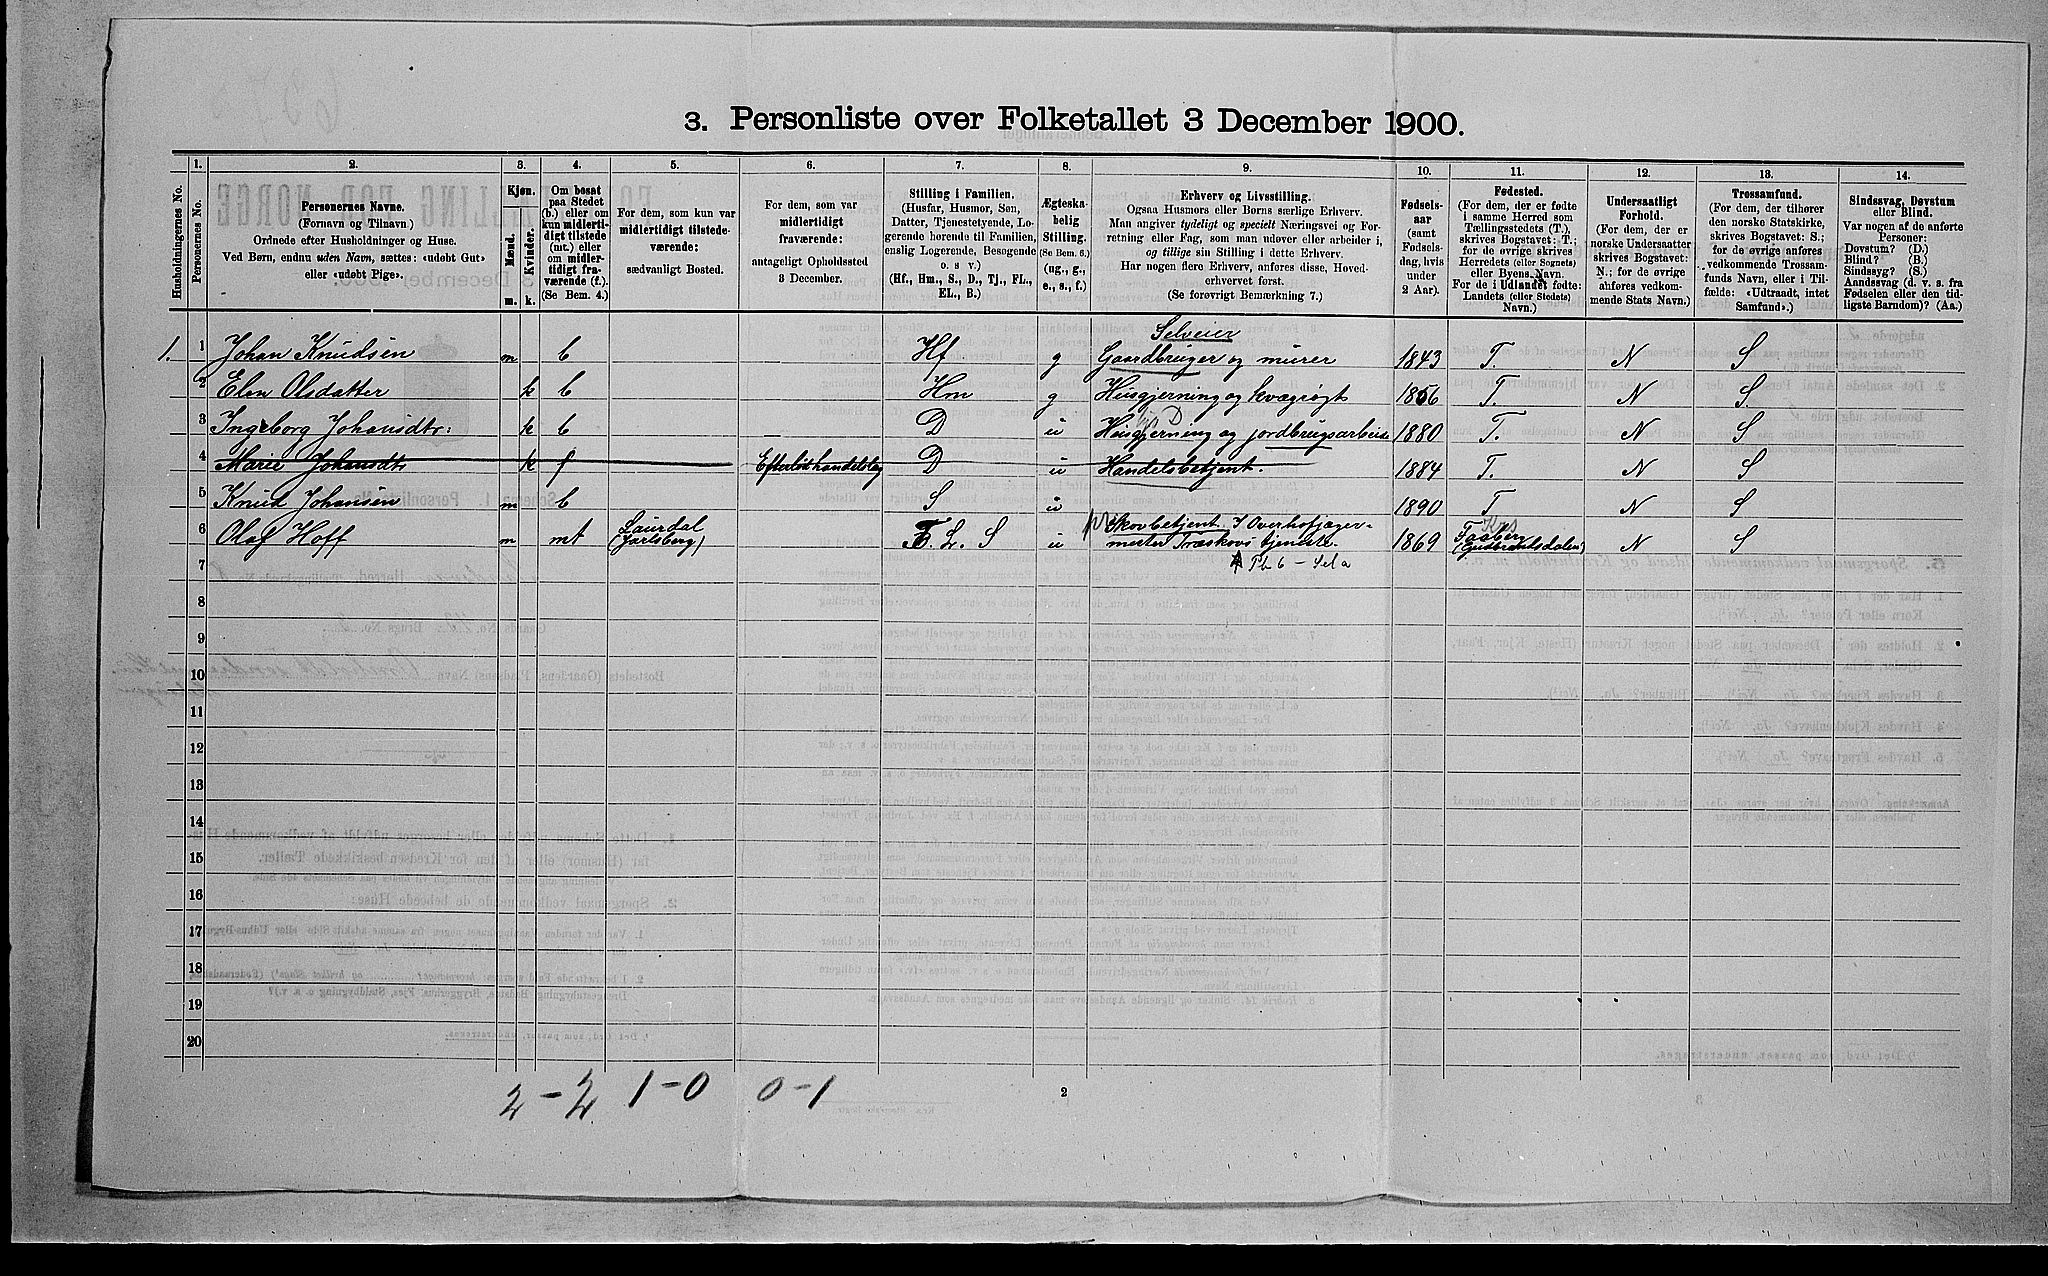 3. Personliste over Folketallet 3 December 1900.
1. 2. 3. 4. 5. 6. 7. 8. 9. 10. 11. 12. 13. 14.
Husholdningernes No.
Personernes No.
Personernes Navne.
(Fornavn og Tilnavn.)
Ordnede efter Husholdninger og Huse.
Ved Børn, endnu uden Navn, sættes: «udøbt Gut»
eller «udøbt Pige».
Kjøn.
Mænd.
Kvinder.
m. k.
Om bosat
paa Stedet
(b.) eller om
kun midlerti-
digt tilstede
(mt.) eller
om midler-
tidigt fra-
værende (f.).
(Se Bem. 4.)
For dem, som kun var
midlertidigt tilstede-
værende:
sædvanligt Bosted.
For dem, som var
midlertidigt
fraværende:
antageligt Opholdssted
3 December.
Stilling i Familien.
(Husfar, Husmor, Søn,
Datter, Tjenestetyende, Lo-
gerende hørende til Familien,
enslig Logerende, Besøgende
o. s v.)
(Hf., Hm., S., D., Tj., FL.,
EL., B.)
Ægteska-
belig
Stilling.
(Se Bem. 6.)
(ug., g.,
e., s., f.)
Erhverv og Livsstilling.
Ogsaa Husmors eller Børns særlige Erhverv.
Man angiver tydeligt og specielt Næringsvei og For-
retning eller Fag, som man udøver eller arbeider i,
og tillige sin Stilling i dette Erhverv.
Har nogen flere Erhverv, anføres disse, Hoved-
erhvervet først.
(Se forøvrigt Bemærkning 7.)
Fødsels-
aar
(samt
Fødsels-
dag, hvis
under
2 Aar).
Fødested.
(For dem, der er fødte
i samme Herred som
Tællingsstedets (T.),
skrives Bogstavet: T.;
for de øvrige skrives
Herredets (eller Sognets)
eller Byens Navn.
For de i Udlandet fødte:
Landets (eller Stedets)
Navn.)
Undersaatligt
Forhold.
(For dem, der er
norske Undersaatter
skrives Bogstavet:
N.; for de øvrige
anføres vedkom-
mende Stats Navn.)
Trossamfund.
(For dem, der tilhører
den norske Statskirke,
skrives Bogstavet: S.;
for de øvrige anføres
vedkommende Trossam-
funds Navn, eller i Til-
fælde: «Udtraadt, intet
Samfund».)
Sindssvag, Døvstum
eller Blind.
Var nogen af de anførte
Personer:
Døvstum? (D.)
Blind? (B.)
Sindssyg? (S.)
Aandssvag (d. v. s. fra
Fødselen eller den tid-
ligste Barndom)? (Aa.)
Selveier
1. 1 Johan Knudsen m b Hf g Gaardbruger og murer 1843 T. N S
2 Elen Olsdatter k b Hm g Husgjerning og kvægrøgt 1856 T. N S.
3 Ingeborg Johansdtr: k b D u Husgjerning og jordbrugsarbeide 1880 T. N S
4 Marie Johansdtr k f D u Handelsbetjent. 1884 T. N S
5 Knud Johansen m b S u 1890 T N S
6 Olaf Hoff m mt Laurdal (Jarlsberg) L. S u Skovbetjent. I Overhofjæger- 1869 Faaberg (Gudbrandsdalen) N S
mester Træskovs tjeneste.
7
8
9
10
11
12
13
14
15
16
17
18
19
20
2 - 2 1 - 0 0 - 1
2